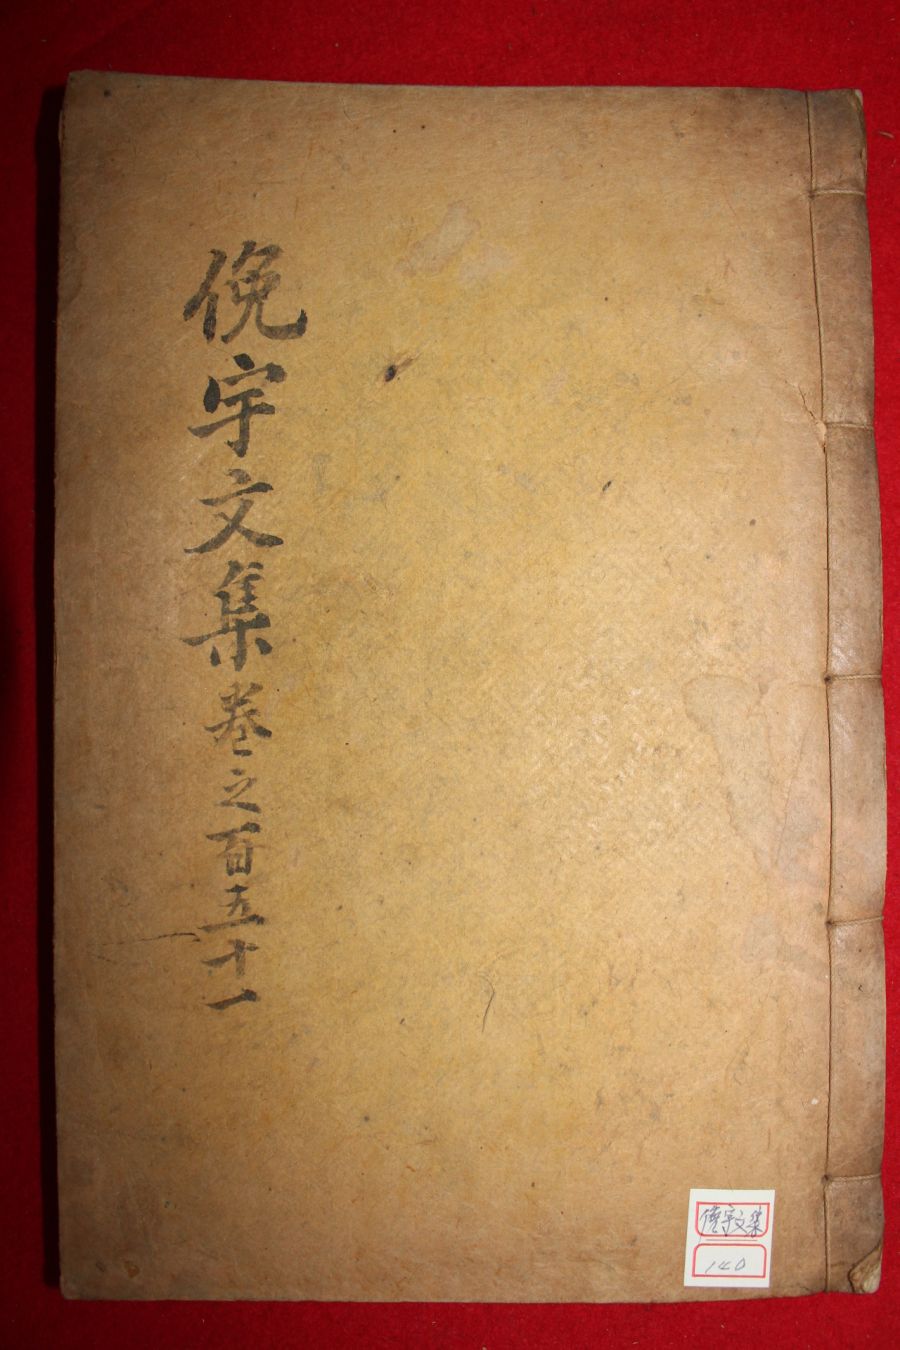 俛宇文集卷之百五十一
俛宇文集
140